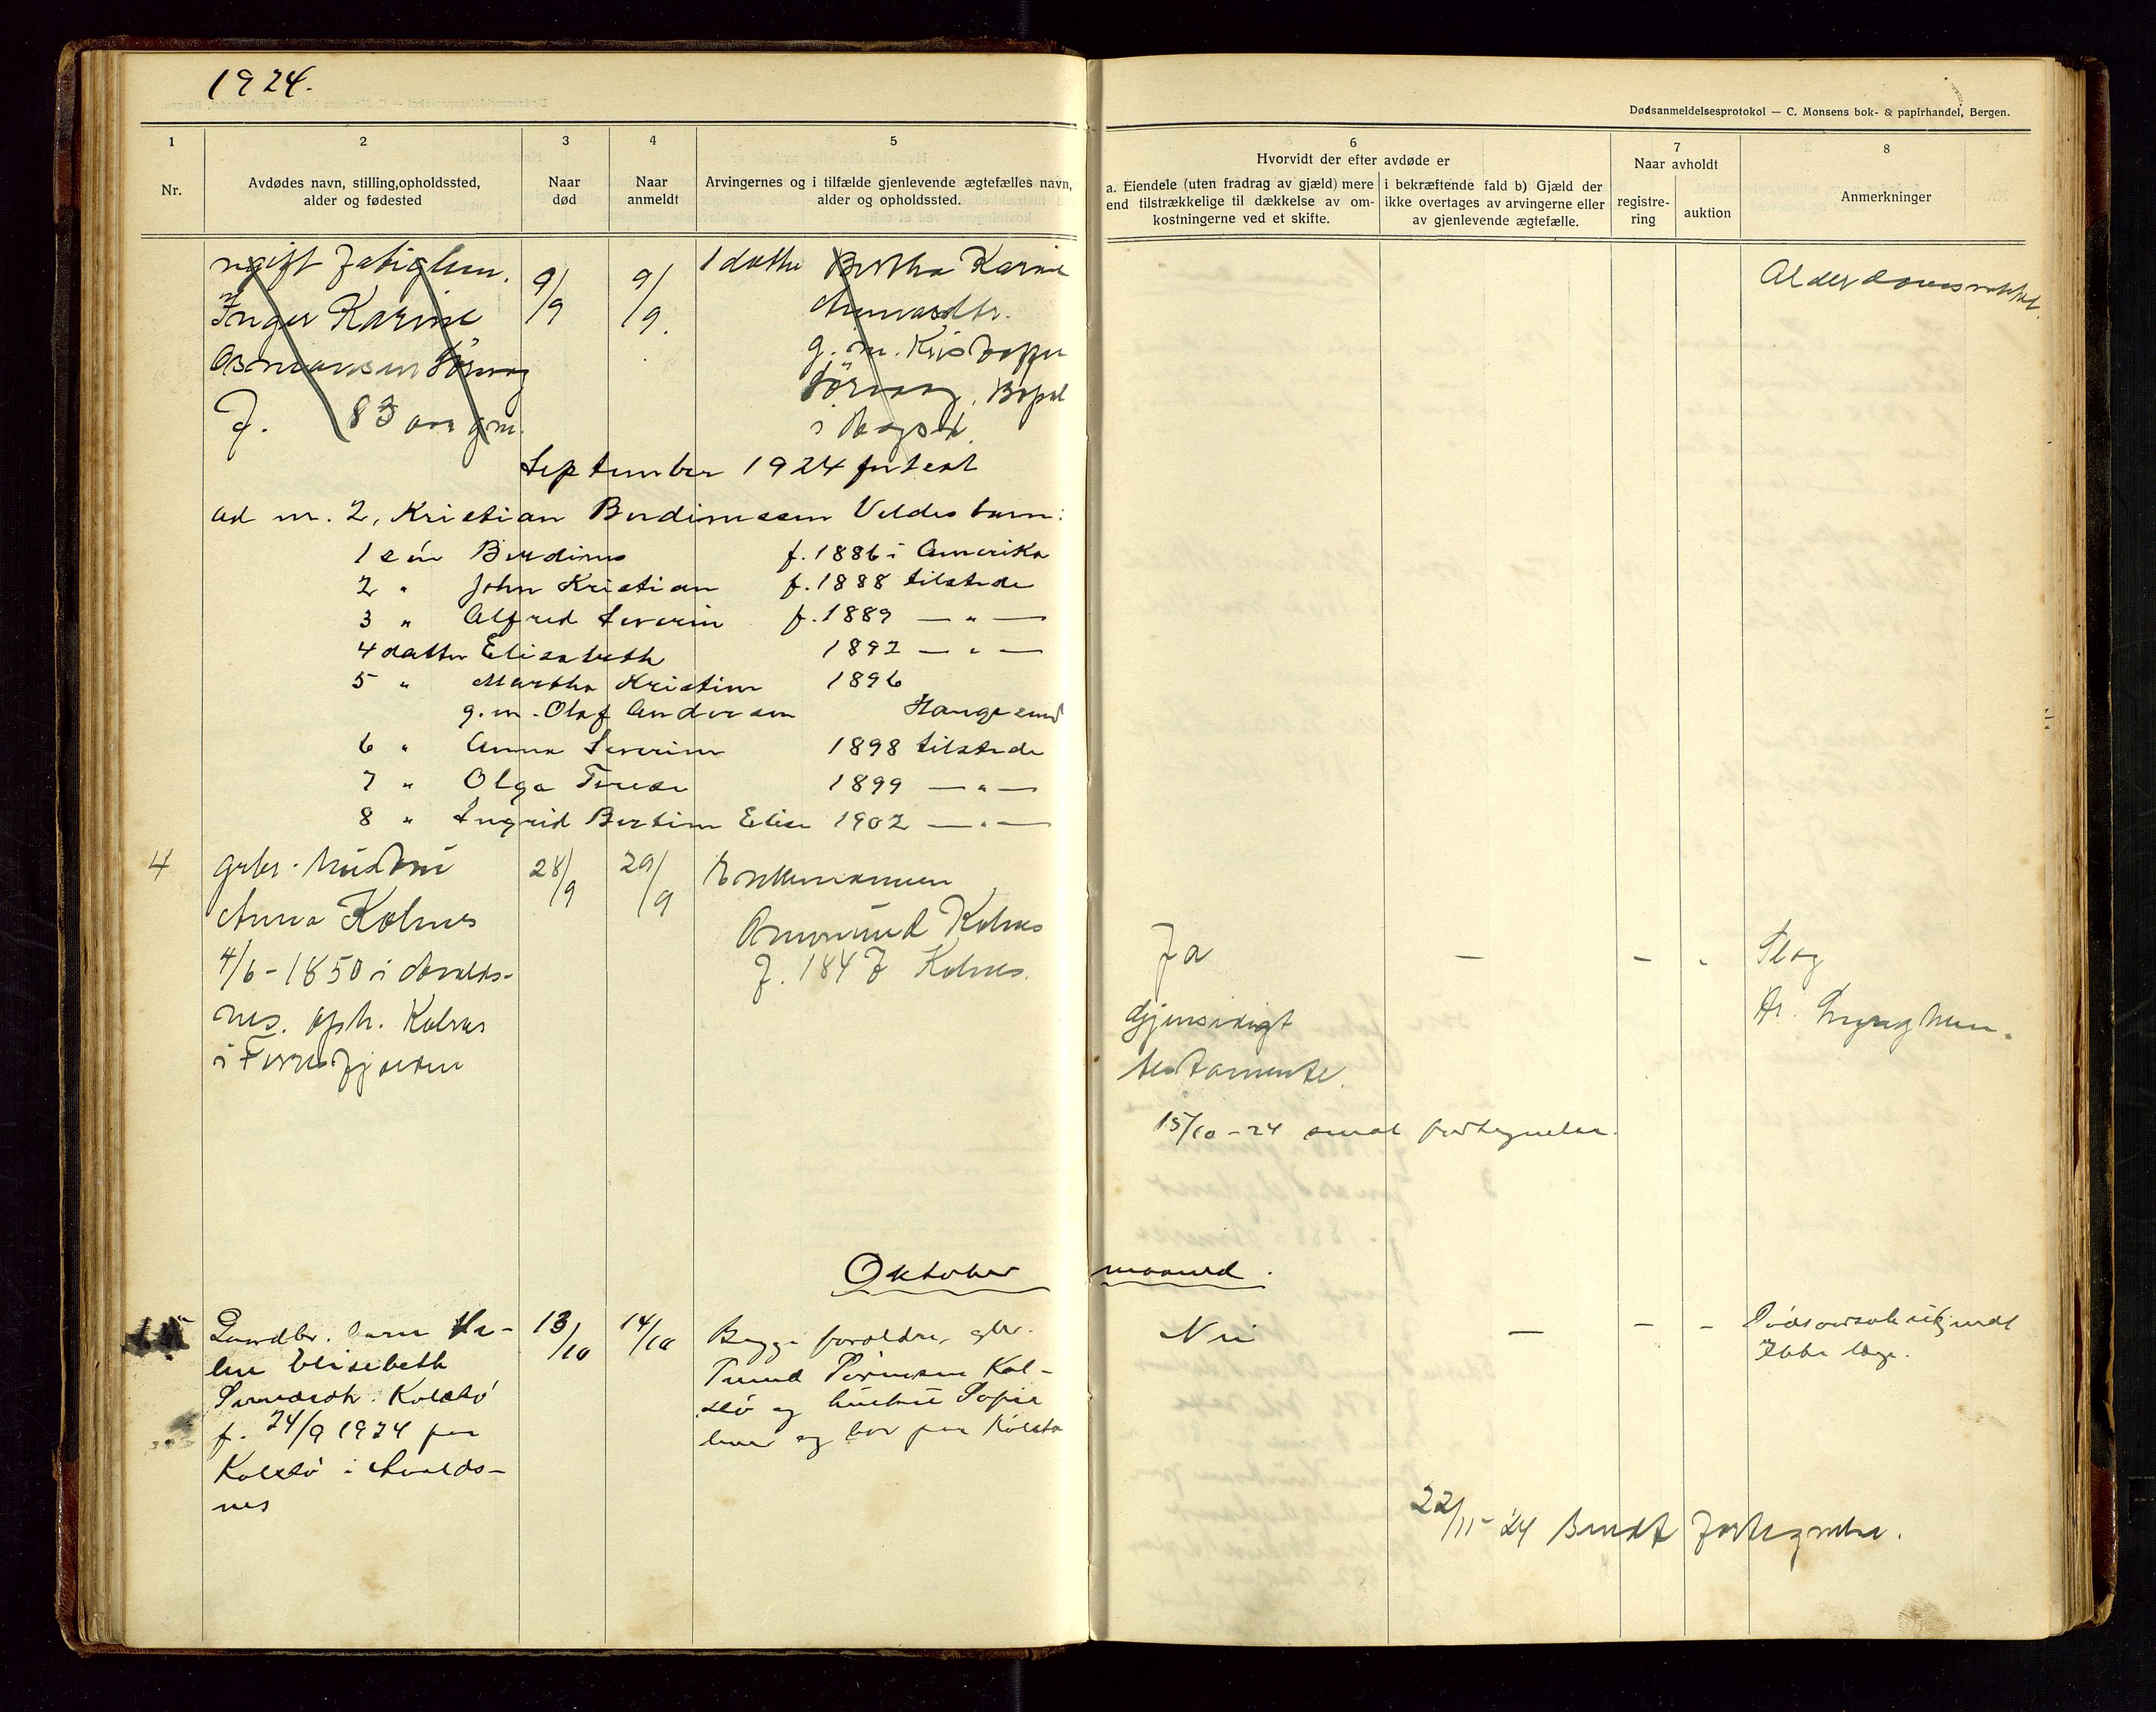 1924.
Dødsanmeldelsesprotokol — C. Monsens bok- & papirhandel, Bergen.
1
2
3
4
5
6
7
8
Nr.
Avdødes navn, stilling, opholdssted,
alder og fødested
Naar
død
Naar
anmeldt
Arvingernes og i tilfælde gjenlevende ægtefælles navn,
alder og opholdssted.
Hvorvidt der efter avdøde er
a. Eiendele (uten fradrag av gjæld) mere
end tilstrækkelige til dækkelse av om-
kostningerne ved et skifte.
i bekræftende fald b) Gjæld der
ikke overtages av arvingerne eller
av gjenlevende ægtefælle.
Naar avholdt
registre-
ring
auktion
Anmerkninger
ugift fatiglem. 9/9 9/9. 1 datter Bertha Karine
Inger Karine
g. m. Kristoffer
J. 83 aar gm.
Alderdomssvakhet.
September 1924 fortsat
ad nr. 2, Kristian Berdinessen Veldes barn:
1 søn Berdines f. 1886 i Amerika
2 " John Kristian f. 1888 tilstede
3 " Alfred Severin f. 1889 — " —
4 datter Elisabeth 1892 — " —
5 " Martha Kristine 1896
g. m. Olaf Andersen Haugesund
6 " Anna Severine 1898 tilstede
7 " Olga Terese 1899 — " —
8 " Ingrid Bertine Elise 1902 — " —
4 grbr. hustru 28/9 29/9 Enkemannen
Anna Kolnes
Amund Kolnes
4/6 - 1850 i Avalds-
f. 1847 Kolnes.
nes. oph. Kolnes
i Førresfjorden
Ja — - - Slag
Gjensidigt
testamente.
15/10 - 24 sendt fortegnelse.
Oktober maaned.
Gaardbr. barn Ha- 13/10 14/10 Begge forældre, gbr.
line Elisebeth
Kolstø
f. 24/9 1924 paa
Kolstø i Avalds-
nes
Kol-
stø og hustru Sofie
og bor paa Kolstø
Nei — - - Dødsaarsak ukjendt
Ikke læge.
22/11 - 24 Sendt fortegnelse.